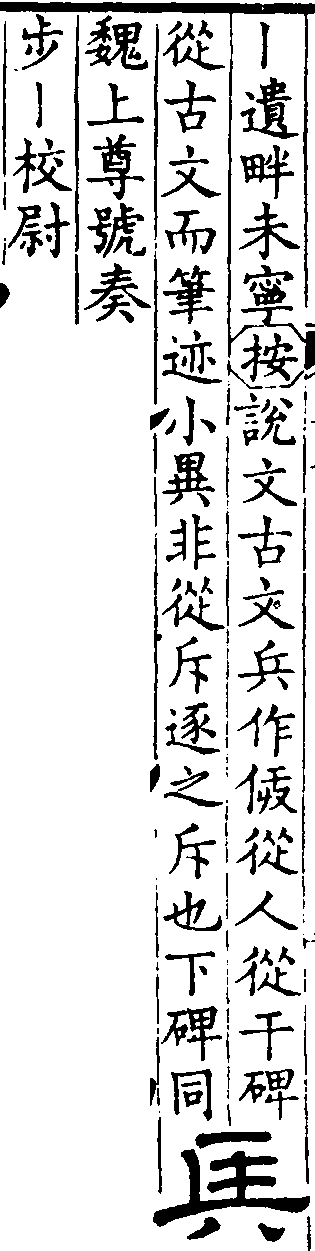 丨遺畔未寧按說文古文兵作㑟從人從干碑
從古文而筆迹小異非從斥逐之斥也下碑同
兵
魏上尊號奏
步丨校尉